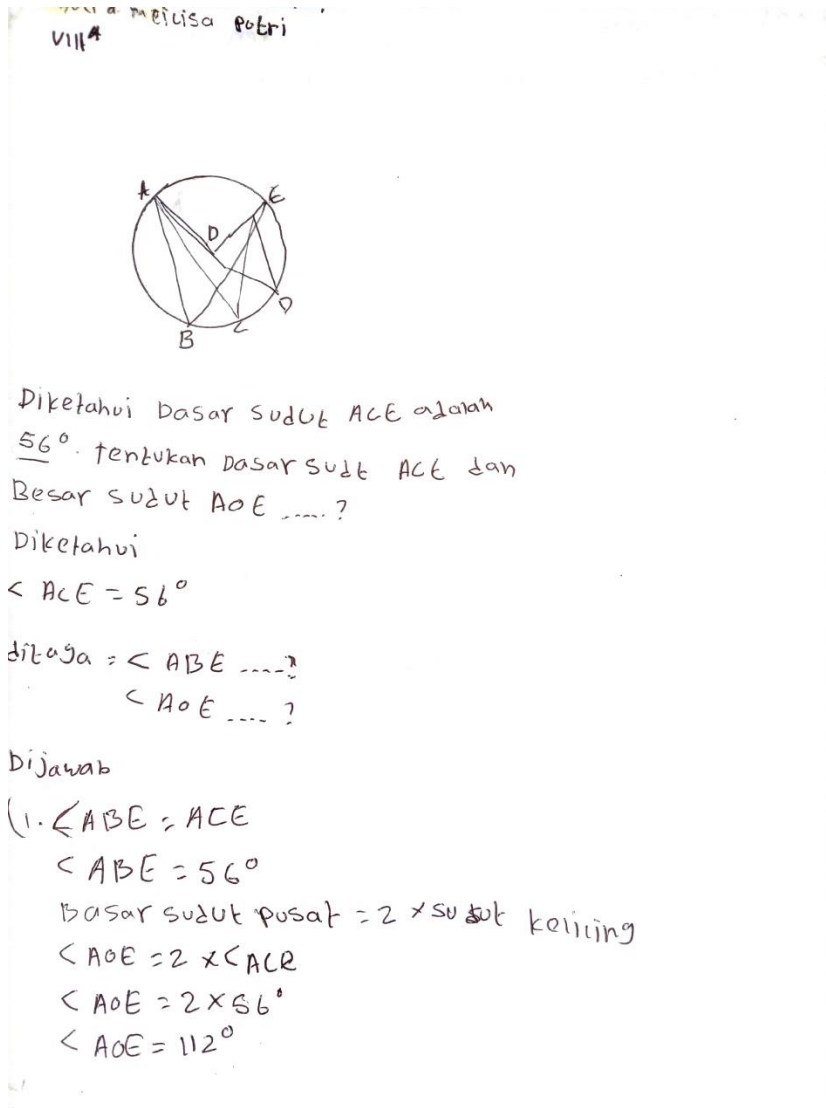 Meilisa Putri
VIII A
A
E
D
D
B
C
Diketahui Dasar sudut ACE adalah
56°. tentukan Dasar sudt ACE dan
Besar sudut AOE .....?
Diketahui
< ACE = 56°
= < ABE ....?
< AOE ....?
Dijawab
(1. < ABE = ACE
< ABE = 56°
Basar sudut pusat = 2 × sudut keliling
< AOE = 2 × < ACE
< AOE = 2 × 56°
< AOE = 112°